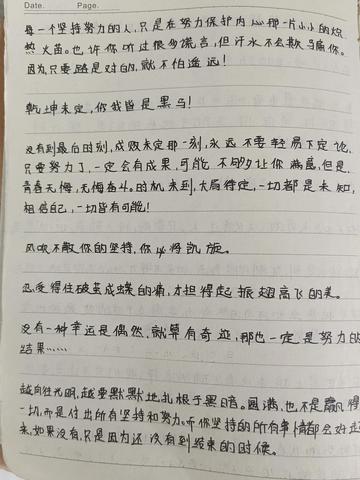 Date. Page.
每一个坚持努力的人,只是在努力保护内心那一片小小的炽
热火苗。也许你听过很多谎言,但汗水不会欺骗你。
因为只要路是对的,就不怕遥远!
乾坤未定,你我皆是黑马!
没有到最后时刻,成败未定那一刻,永远不要轻易下定论,
只要努力了,一定会有成果,可能不够让你满意,但是,
青春无悔,无悔奋斗。时机未到,大局待定,一切都是未知,
相信自己,一切皆有可能!
风吹不散你的坚持,你必将凯旋。
忍受得住破茧成蝶的痛,才担得起振翅高飞的美。
没有一种幸运是偶然,就算有奇迹,那也一定是努力的
结果……
越向往光明,越要默默地扎根于黑暗。圆满,也不是赢得
一切,而是付出所有坚持和努力。你坚持的所有事情都会好起
来,如果没有,只是因为还没有到结束的时候。